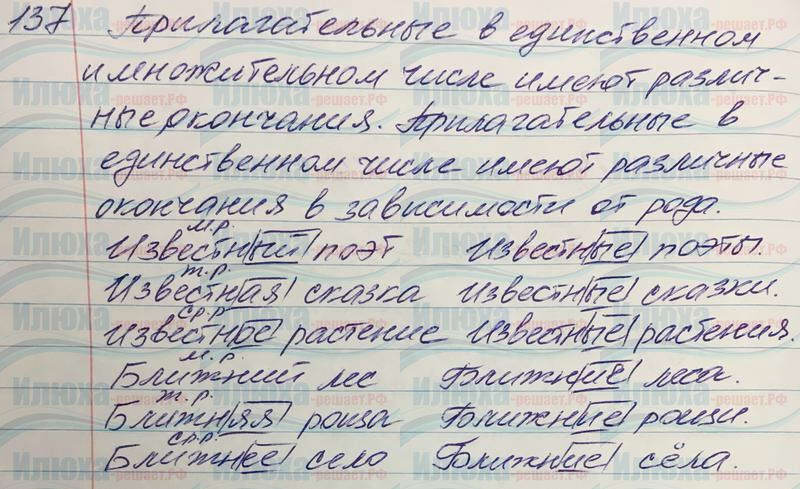 137 Прилагательные в единственном
и множительном числе имеют различ-
ные окончания. Прилагательные в
единственном числе имеют различные
окончания в зависимости от рода.
м.р.
Известный поэт Известные поэты.
ж.р.
Известная сказка Известные сказки.
ср.р.
Известное растение Известные растения.
м.р.
Ближний лес Ближние леса.
ж.р.
Ближняя роща Ближние рощи.
ср.р.
Ближнее село Ближние сёла.
Илюха-решает.РФ